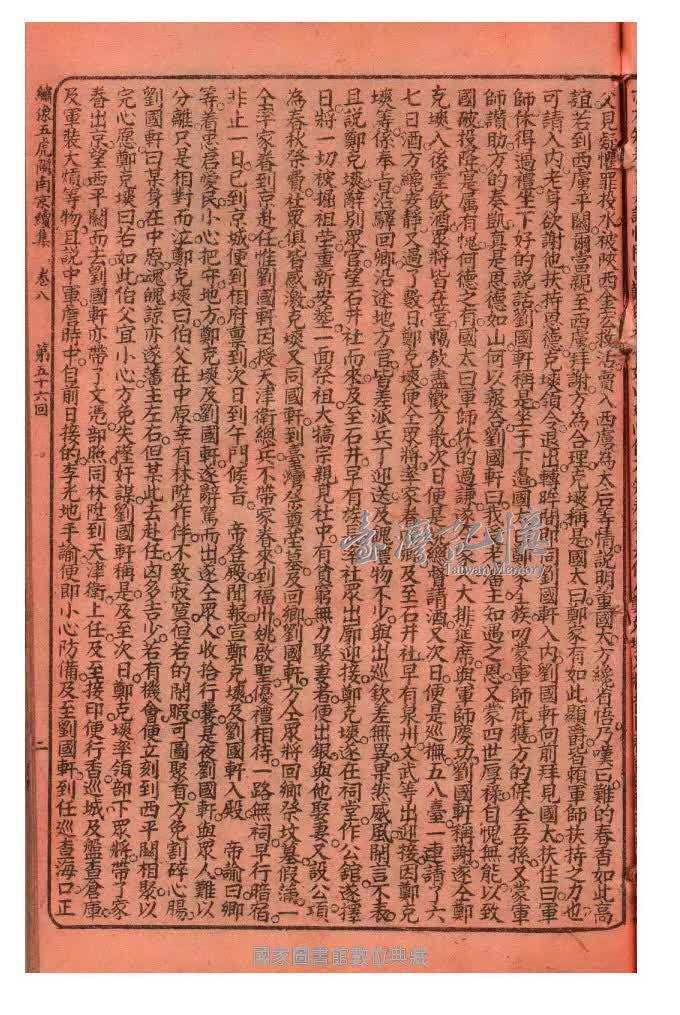 父見疑懼罪投水被陝西金公救活賣入西虜為太后等情說明董國太方纔省悟乃嘆曰難的春香如此高
誼若到西虜平關爾當親至西虜拜謝方為合理克塽稱是國太曰鄭家有如此顯爵皆賴軍師扶持之力也
可請入內老身欲謝他扶持恩德克塽領令退出轉眸間即同劉國軒入內劉國軒向前拜見國太扶住曰軍
師休得過禮坐下好的說話劉國軒稱是坐于下邊國太曰鄭家不族叨蒙軍師庇護方的保全吾孫又蒙軍
師讚助方的奏凱真是恩德如山何以報答劉國軒曰我受老藩主知遇之恩又蒙四世厚祿自愧無能以致
國破投降寔屬有愧何德之有國太曰軍師休的過謙遂令大排筵席與軍師慶功劉國軒稱謝遂仝鄭
克塽入後堂飲酒眾將皆在堂暢飲盡歡方散次日便是總督請酒又次日便是巡撫五八臺一連請了六
七日酒方纔安靜又過了數日鄭克塽便仝眾將率家眷 及至石井社早有泉州文武等出迎接因鄭克
塽等係奉旨沿驛回鄉沿途地方官皆差派兵丁迎送及餽禮物不少與出巡欽差無異果然威風閒言不表
且說鄭克塽辭別眾官望石井社而來及至石井早有族 社眾出廓迎接鄭克塽遂在祠堂作公館遂擇
日將一切被掘祖塋重新安塟一面祭祖大犒宗親見社中有貧窮無力娶妻者便出銀與他娶妻又設公項
為春秋祭費社眾俱皆感激克塽又同國軒到臺灣祭奠塋墓及回鄉劉國軒方仝眾將回鄉祭坟墓假滿一
仝率家眷到京赴任惟劉國軒因授天津衛總兵不帶家眷來到福州姚啟聖優禮相待一路無詞早行暗宿
非止一日已到京城便到相府稟到次日到午門候旨 帝登殿聞報宣鄭克塽及劉國軒入殿 帝諭曰卿
等着忠君愛民小心把守地方鄭克塽及劉國軒遂辭駕而出遂仝眾人收拾行囊是夜劉國軒與眾人難以
分離只是相對而泣鄭克塽曰伯父在中原幸有林陞作伴不致寂寞但若的閒暇可圖聚首方免割碎心腸
劉國軒曰某身在中原魂魄諒亦遂藩主左右但某此去赴任凶多吉少若有機會便立刻到西平關相聚以
完心愿鄭克塽曰若如此伯父宜小心方免失墜奸謀劉國軒稱是及至次日鄭克塽率領部下眾將帶了家
眷出京望西平關而去劉國軒亦帶了文憑部照同林陞到天津衛上任及至接印便行香巡城及盤查倉庫
及軍裝大煩等物且說中軍詹蔣中自前日接的李光地手諭便即小心防備及至劉國軒到任巡查海口正
繡像五虎鬧南京續集 卷八 第五十六回 二
臺灣記憶
Taiwan Memory
國家圖書館數位典藏